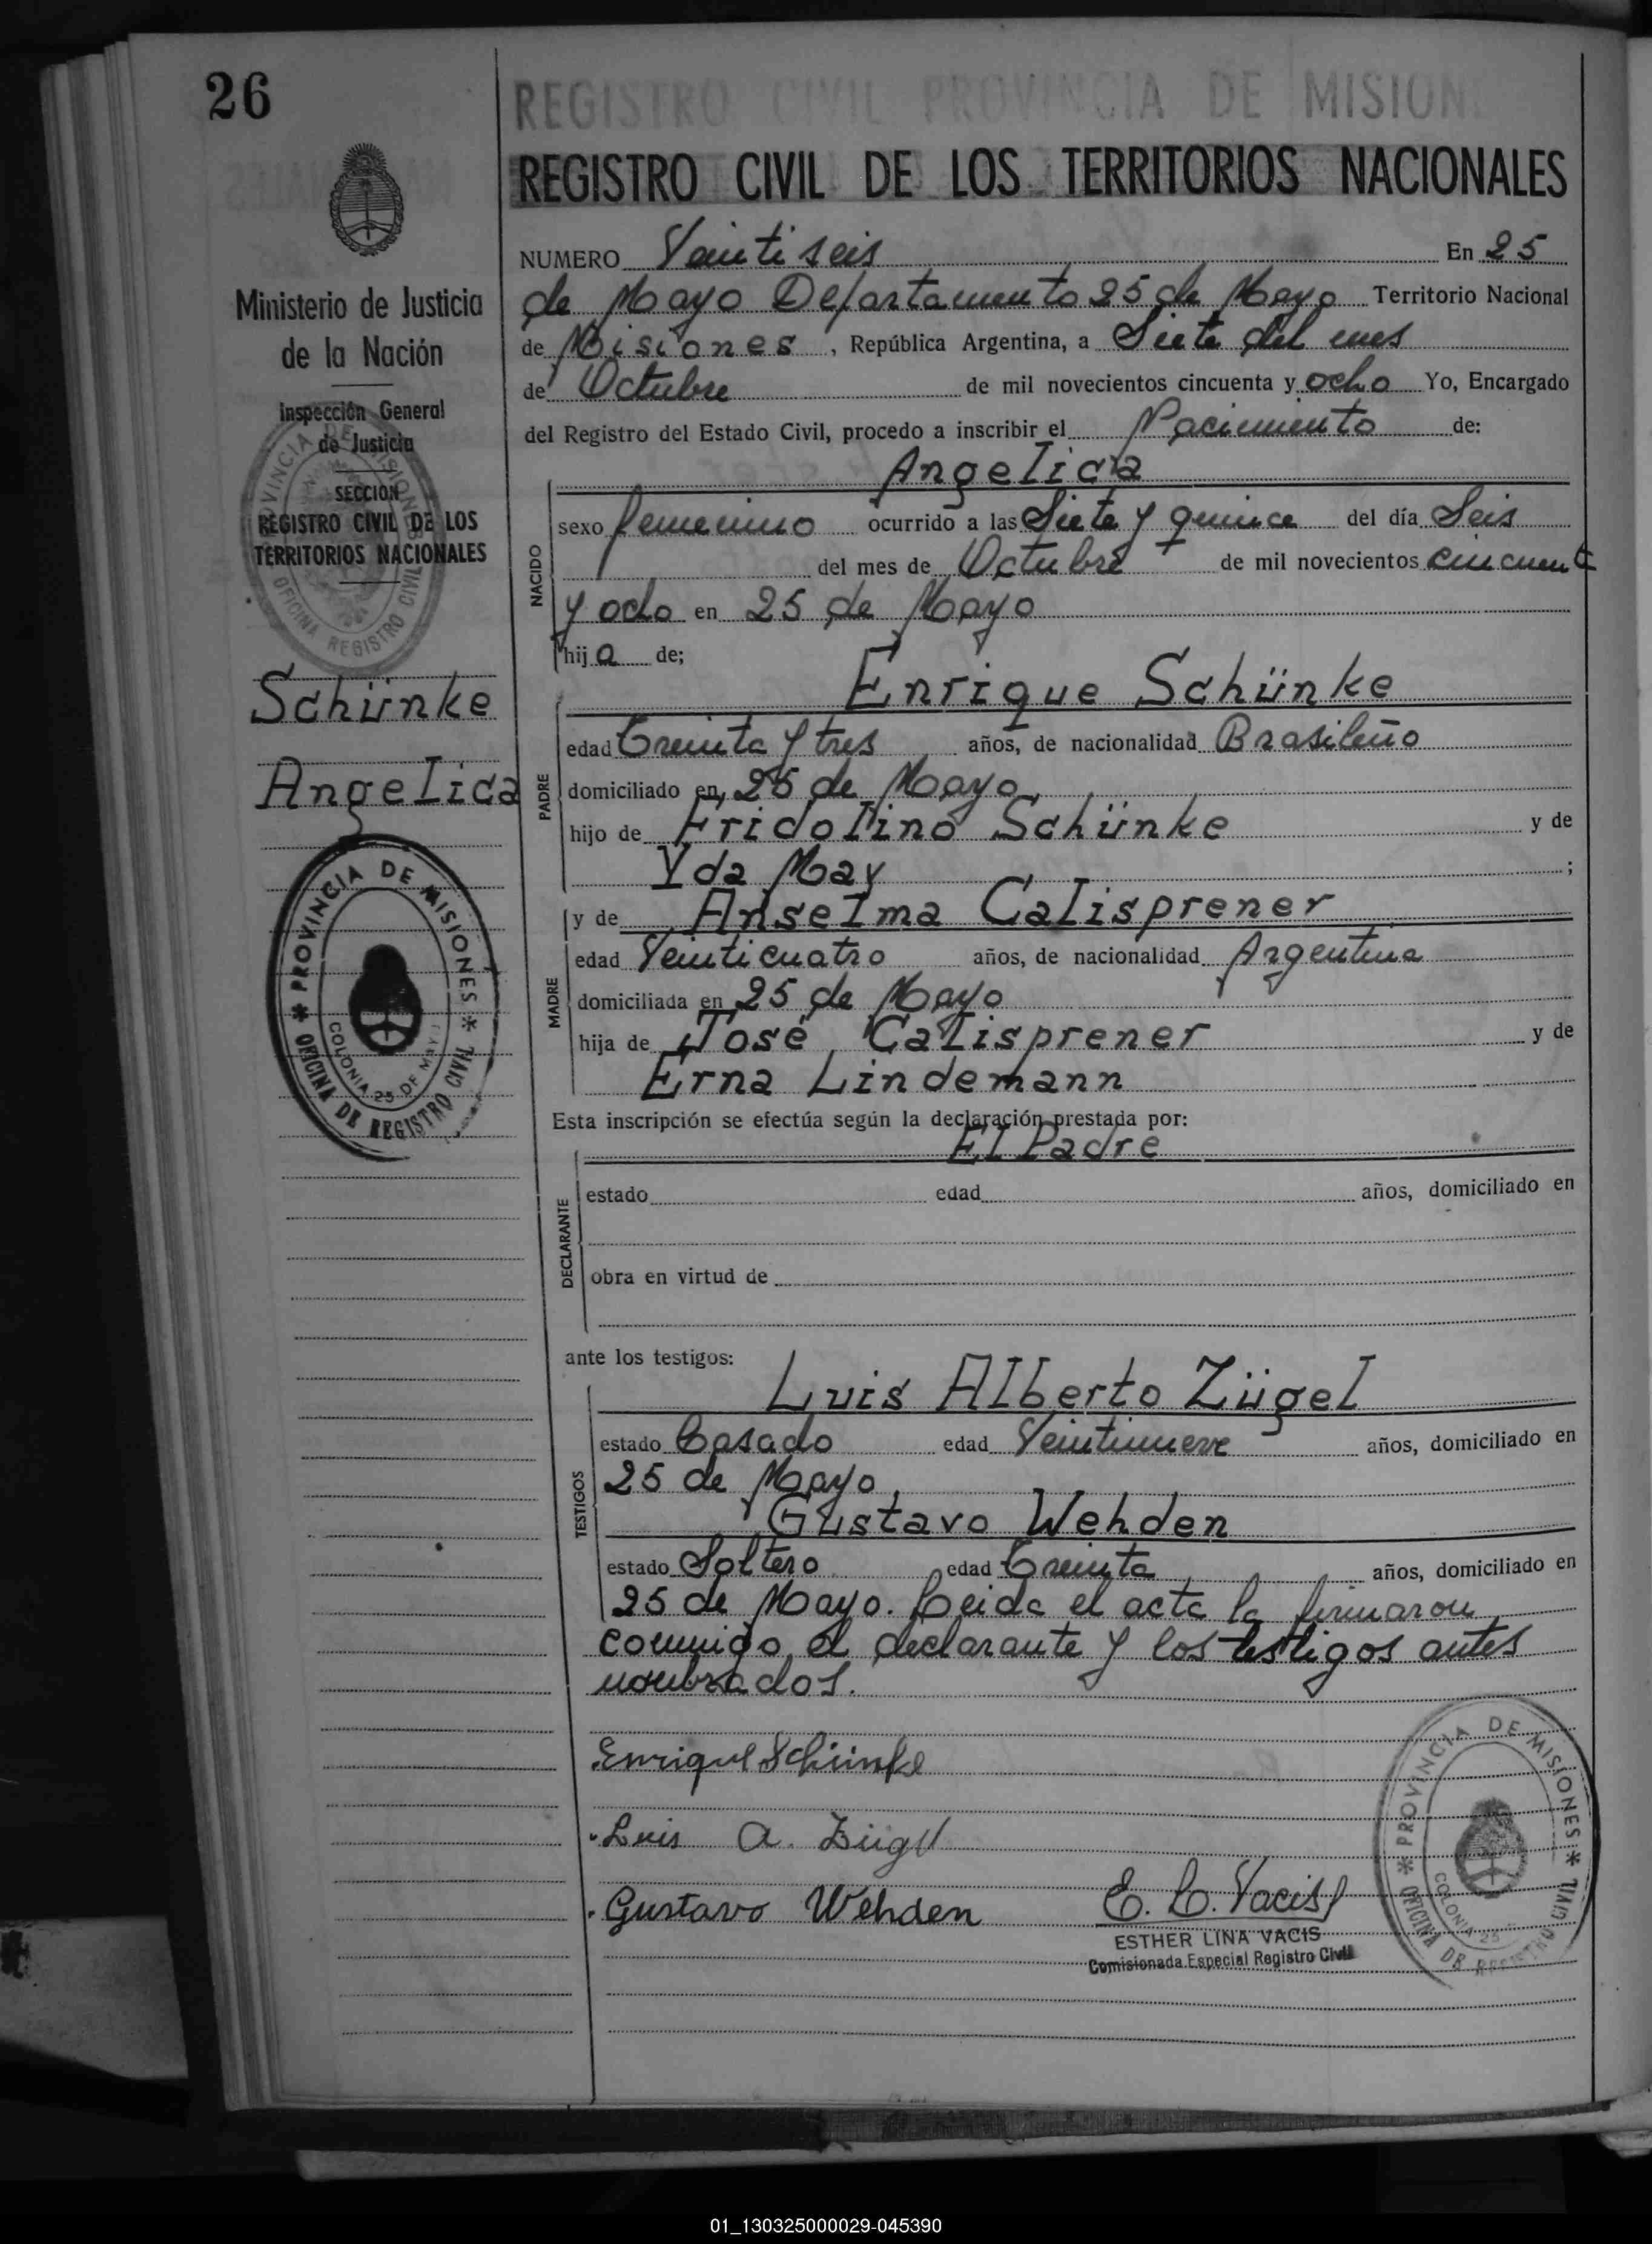 26
REGISTRO CIVIL PROVINCIA DE MISION
REGISTRO CIVIL DE LOS TERRITORIOS NACIONALES
Ministerio de Justicia
de la Nación
Inspección General
de Justicia
SECCION
REGISTRO CIVIL DE LOS
TERRITORIOS NACIONALES
PROVINCIA DE MISIONES
OFICINA REGISTRO CIVIL
Schünke
Angelica
PROVINCIA DE MISIONES
OFICINA DE REGISTRO CIVIL
COLONIA 25 DE MAYO
NUMERO Veinti seis En 25
de Mayo Departamento 25 de Mayo Territorio Nacional
de Misiones, República Argentina, a Siete del mes
de Octubre de mil novecientos cincuenta y ocho Yo, Encargado
del Registro del Estado Civil, procedo a inscribir el Nacimiento de:
Angelica
NACIDO
sexo femenino ocurrido a las Siete y quince del día Seis
del mes de Octubre de mil novecientos cincuent
y ocho en 25 de Mayo
hija de;
Enrique Schünke
PADRE
edad Treinta y tres años, de nacionalidad Brasileño
domiciliado en 25 de Mayo
hijo de Fridolino Schünke y de
Yda May ;
y de Anselma Calisprener
MADRE
edad Veinticuatro años, de nacionalidad Argentina
domiciliada en 25 de Mayo
hija de José Calisprener y de
Erna Lindemann
Esta inscripción se efectúa según la declaración prestada por:
El Padre
DECLARANTE
estado edad años, domiciliado en
obra en virtud de
ante los testigos:
Luis Alberto Zügel
TESTIGOS
estado Casado edad Veintinueve años, domiciliado en
25 de Mayo,
Gustavo Wehden
estado Soltero edad Treinta años, domiciliado en
25 de Mayo. Leida el acta la firmaron
conmigo el declarante y los testigos antes
nombrados.
Enrique Schünke
Luis A. Zügel
Gustavo Wehden E. L. Vacis
ESTHER LINA VACIS
Comisionada Especial Registro Civil
PROVINCIA DE MISIONES
OFICINA DE REGISTRO CIVIL
COLONIA 25
01_130325000029-045390